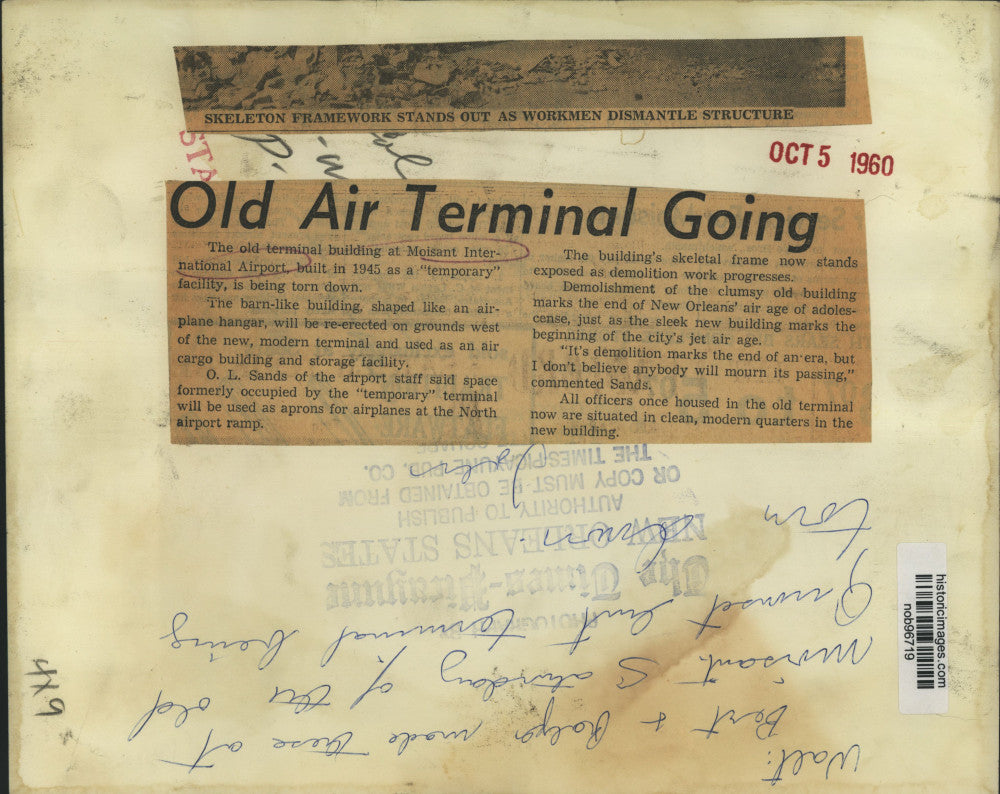 SKELETON FRAMEWORK STANDS OUT AS WORKMEN DISMANTLE STRUCTURE
OCT 5 1960
Old Air Terminal Going
The old terminal building at Moisant Inter-
national Airport, built in 1945 as a "temporary"
facility, is being torn down.
The barn-like building, shaped like an air-
plane hangar, will be re-erected on grounds west
of the new, modern terminal and used as an air
cargo building and storage facility.
O. L. Sands of the airport staff said space
formerly occupied by the "temporary" terminal
will be used as aprons for airplanes at the North
airport ramp.
The building's skeletal frame now stands
exposed as demolition work progresses.
Demolishment of the clumsy old building
marks the end of New Orleans' air age of adoles-
cense, just as the sleek new building marks the
beginning of the city's jet air age.
"It's demolition marks the end of an era, but
I don't believe anybody will mourn its passing,"
commented Sands.
All officers once housed in the old terminal
now are situated in clean, modern quarters in the
new building.
The Times-Picayune
NEW ORLEANS STATES
AUTHORITY TO PUBLISH
OR COPY MUST BE OBTAINED FROM
THE TIMES-PICAYUNE PUB. CO.
SQUARE
Walt:
Bert & Ralph made these at
Moisant Saturday of the old
terminal being
torn
historicimages.com
nob96719